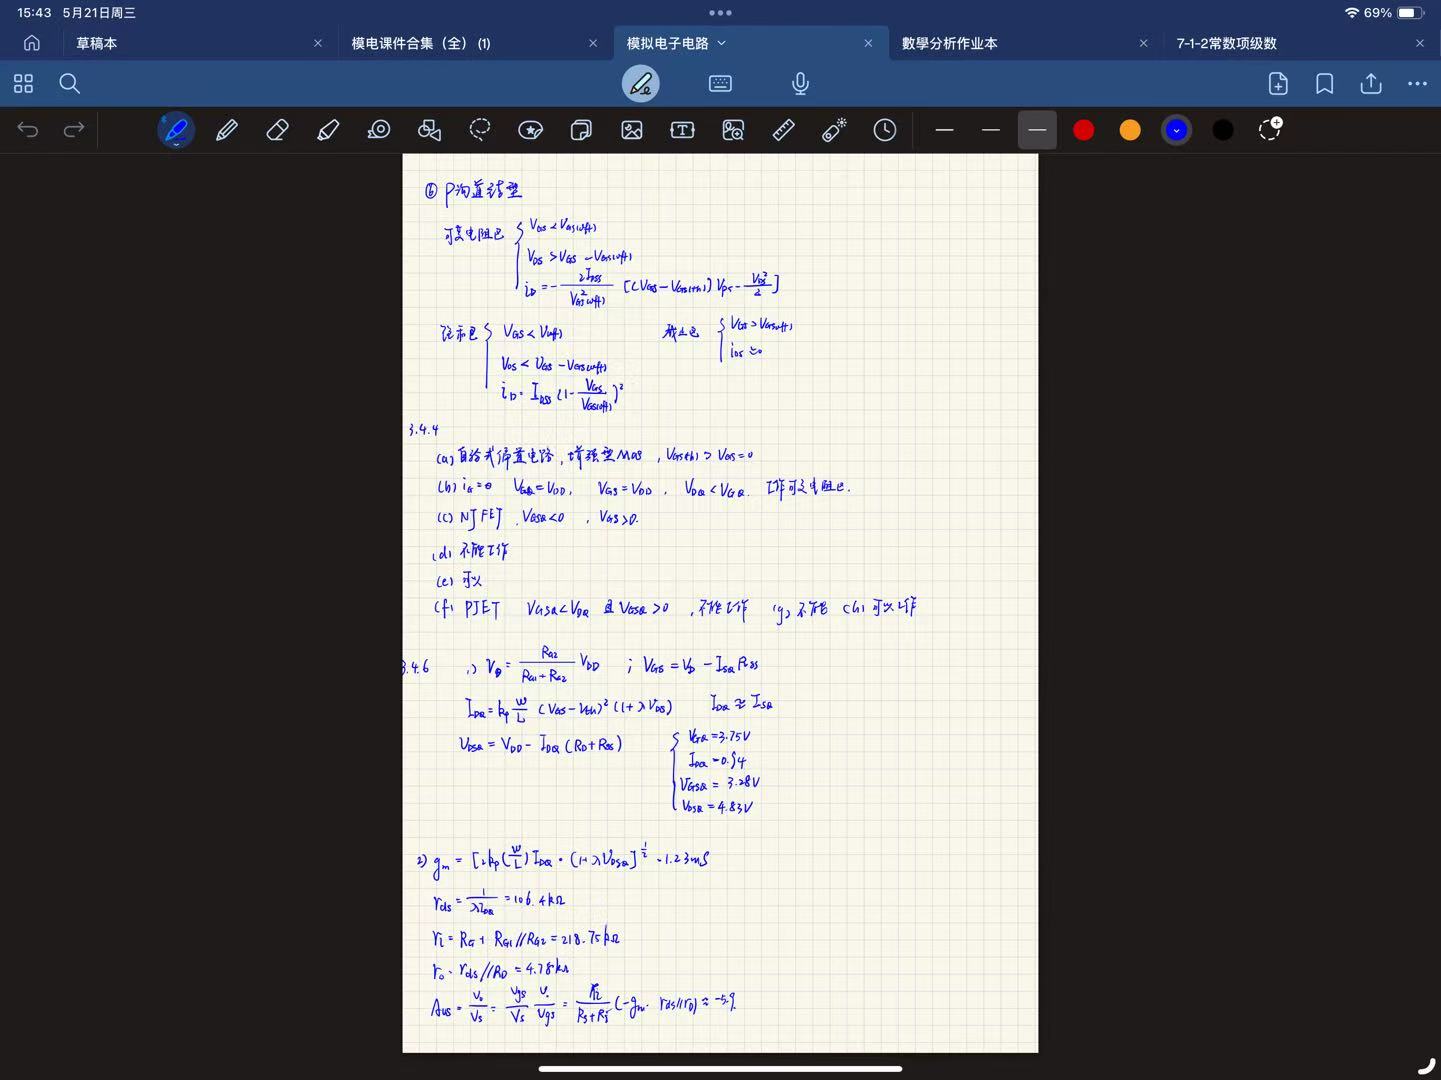 15:43 5月21日周三
69%
草稿本
模电课件合集（全）(1)
模拟电子电路
數學分析作业本
7-1-2常数项级数
⑥ P沟道结型
可变电阻区 { V_GS < V_GS(off)
V_DS > V_GS - V_GS(off)
i_D = - 2I_DSS / V²_GS(off) [(V_GS - V_GS(th)) V_DS - V_DS²/2]
V_GS < V(off)
截止区 { V_GS > V_GS(off)
V_DS < V_GS - V_GS(off)
i_DS ≈ 0
i_D = I_DSS (1 - V_GS/V_GS(off))²
3.4.4
(a) 自给式偏置电路, 增强型MOS, V_GS(th) > V_GS = 0
(b) i_G = 0 V_GQ = V_DD, V_GS = V_DD, V_DQ < V_GQ. 工作可变电阻区.
(c) NJFET, V_GSQ < 0, V_GS > 0.
(d) 不能工作
(e) 可以
(f) PJET V_GSQ < V_DQ 且 V_GSQ > 0, 不能工作 (g) 不能 (h) 可以工作
3.4.6 1) V_G = R_G2 / (R_G1 + R_G2) V_DD ; V_GS = V_G - I_SQ R_SS
I_DQ = k_p W/L (V_GS - V_th)² (1 + λV_DS) I_DQ ≈ I_SQ
V_DSQ = V_DD - I_DQ (R_D + R_SS)
{ V_GQ = 3.75V
I_DQ = 0.94
V_GSQ = 3.28V
V_DSQ = 4.83V
2) g_m = [2k_p (W/L) I_DQ · (1 + λV_DSQ)]^½ = 1.23mS
r_ds = 1/(λI_DQ) = 106.4kΩ
r_i = R_G + R_G1//R_G2 = 218.75kΩ
r_o = r_ds//R_D = 4.78kΩ
A_us = V_o/V_s = V_gs/V_s V_o/V_gs = R_i/(R_s + R_i) (-g_m · r_ds//r_D) ≈ -5.9